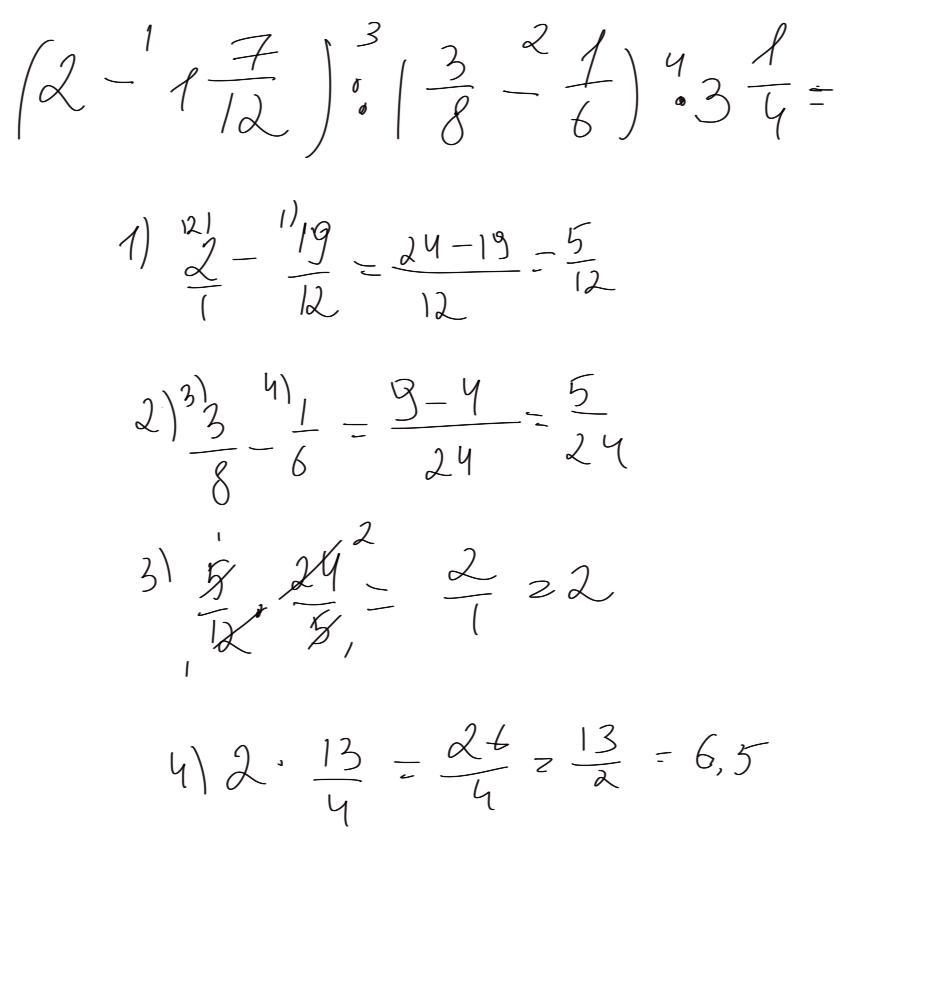 (2 -¹ 1 7/12) :³ (3/8 -² 1/6) ·⁴ 3 1/4 =
1) ¹²⁾2/1 - ¹⁾19/12 = (24-19)/12 = 5/12
2) ³⁾3/8 - ⁴⁾1/6 = (9-4)/24 = 5/24
3) 5¹/12₁ · 24²/5₁ = 2/1 = 2
4) 2 · 13/4 = 26/4 = 13/2 = 6,5